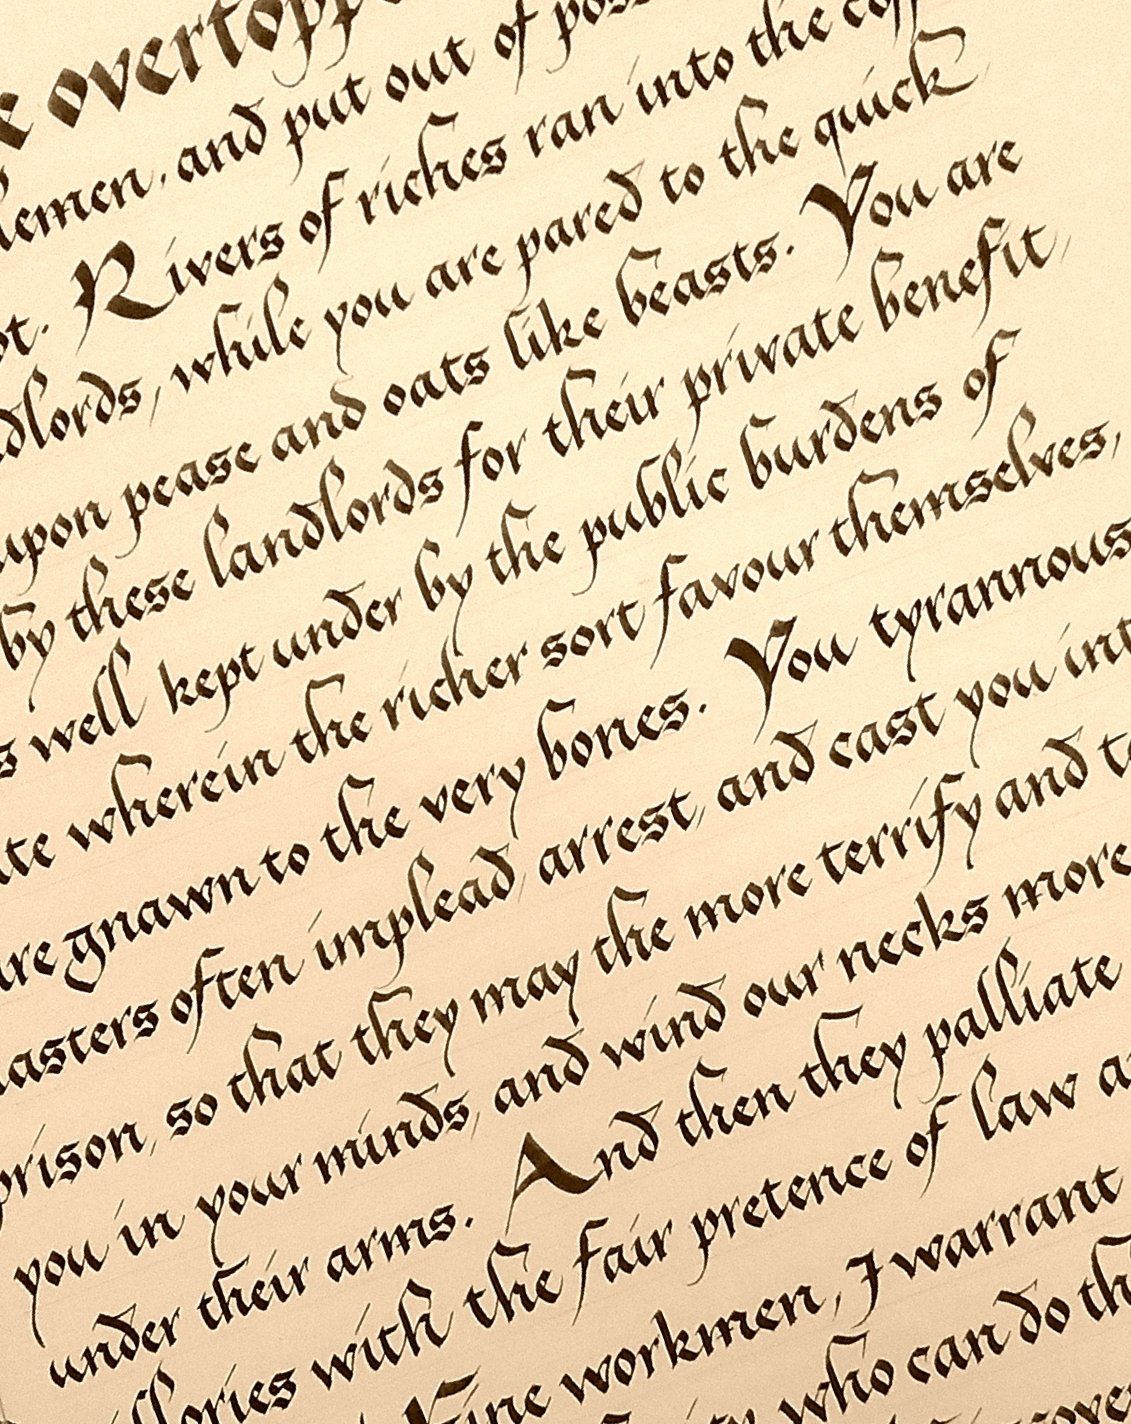 overtopp
lemen, and put out of poss
ot. Rivers of riches ran into the cof
dlords, while you are pared to the quick
upon pease and oats like beasts. You are
by these landlords for their private benefit,
s well kept under by the public burdens of
ate wherein the richer sort favour themselves,
are gnawn to the very bones. You tyrannous
asters often implead, arrest, and cast you int
prison, so that they may the more terrify and to
you in your minds, and wind our necks more
under their arms. And then they palliate
illories with the fair pretence of law a
Fine workmen, I warrant
who can do th